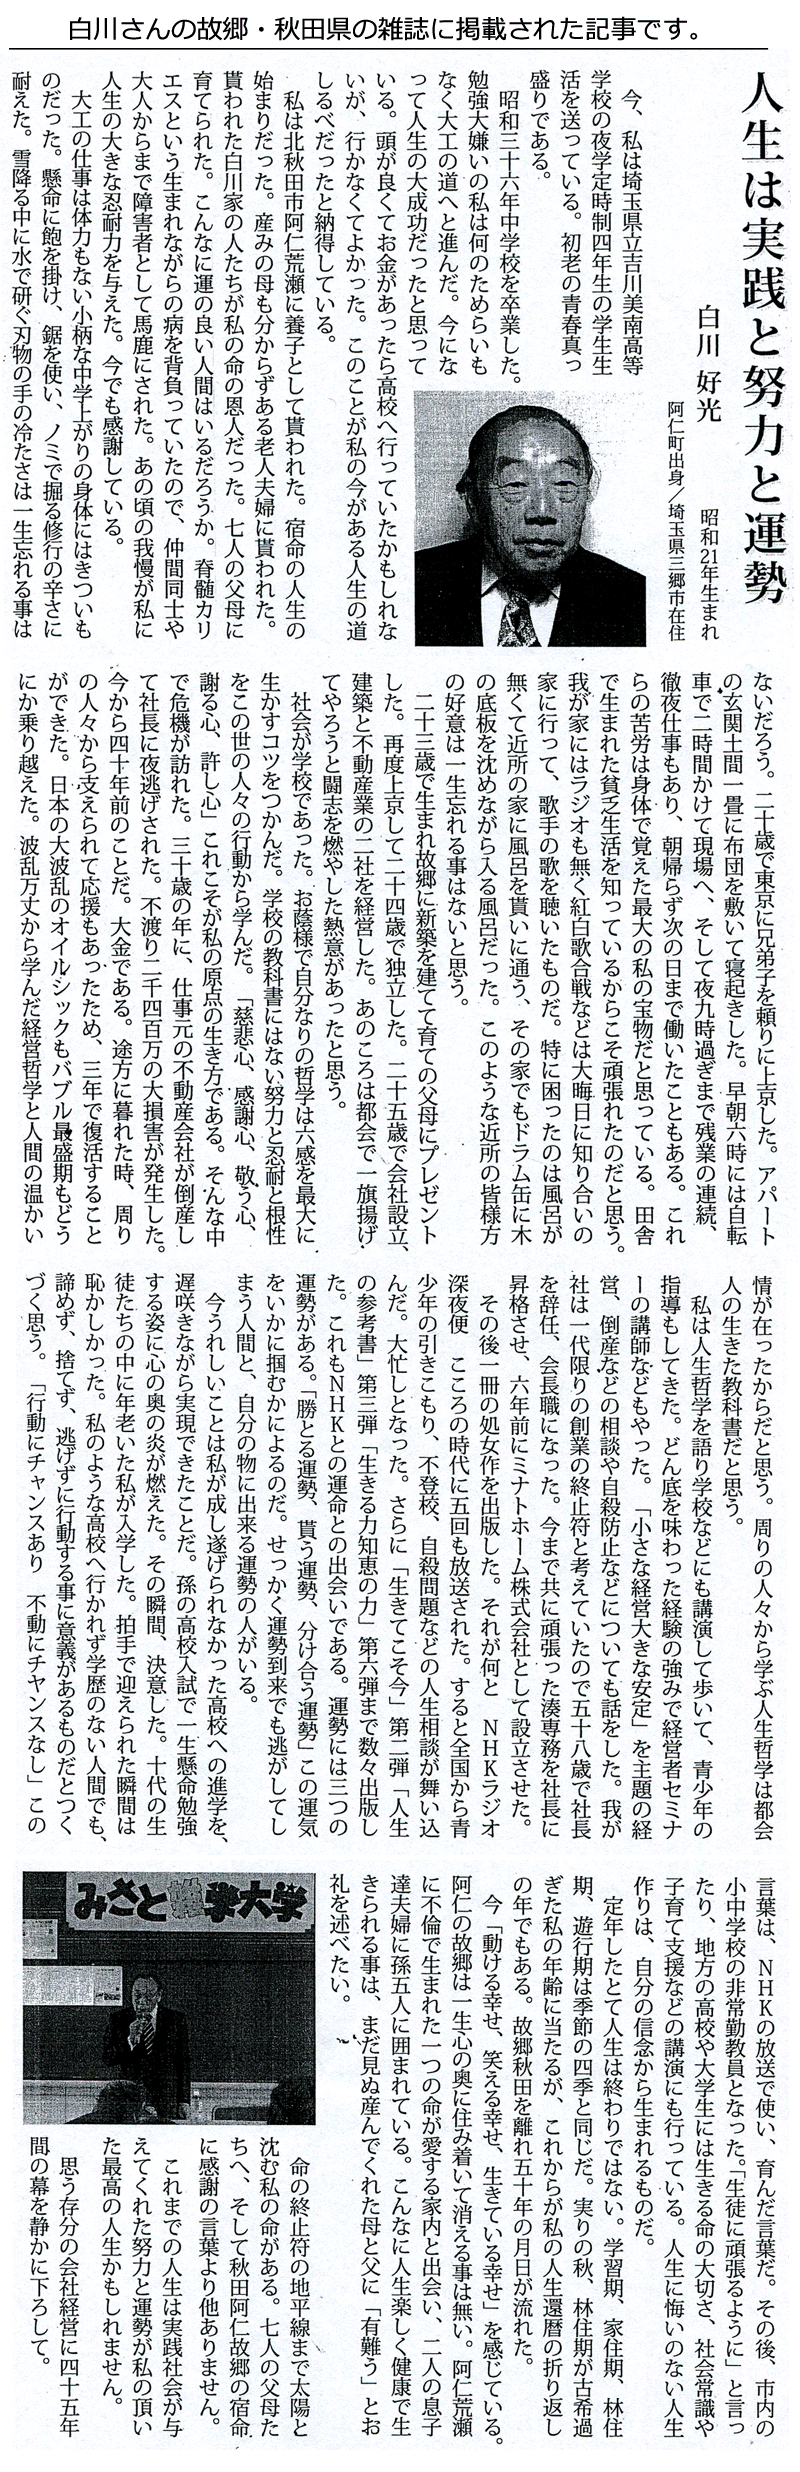 白川さんの故郷・秋田県の雑誌に掲載された記事です。
人生は実践と努力と運勢
白川 好光
昭和21年生まれ
阿仁町出身／埼玉県三郷市在住
今、私は埼玉県立吉川美南高等
学校の夜学定時制四年生の学生生
活を送っている。初老の青春真っ
盛りである。
昭和三十六年中学校を卒業した。
勉強大嫌いの私は何のためらいも
なく大工の道へと進んだ。今にな
って人生の大成功だったと思って
いる。頭が良くてお金があったら高校へ行っていたかもしれな
いが、行かなくてよかった。このことが私の今がある人生の道
しるべだったと納得している。
私は北秋田市阿仁荒瀬に養子として貰われた。宿命の人生の
始まりだった。産みの母も分からずある老人夫婦に貰われた。
貰われた白川家の人たちが私の命の恩人だった。七人の父母に
育てられた。こんなに運の良い人間はいるだろうか。脊髄カリ
エスという生まれながらの病を背負っていたので、仲間同士や
大人からまで障害者として馬鹿にされた。あの頃の我慢が私に
人生の大きな忍耐力を与えた。今でも感謝している。
大工の仕事は体力もない小柄な中学上がりの身体にはきついも
のだった。懸命に鉋を掛け、鋸を使い、ノミで掘る修行の辛さに
耐えた。雪降る中に水で研ぐ刃物の手の冷たさは一生忘れる事は
ないだろう。二十歳で東京に兄弟子を頼りに上京した。アパート
の玄関土間一畳に布団を敷いて寝起きした。早朝六時には自転
車で二時間かけて現場へ、そして夜九時過ぎまで残業の連続、
徹夜仕事もあり、朝帰らず次の日まで働いたこともある。これ
らの苦労は身体で覚えた最大の私の宝物だと思っている。田舎
で生まれた貧乏生活を知っているからこそ頑張れたのだと思う。
我が家にはラジオも無く紅白歌合戦などは大晦日に知り合いの
家に行って、歌手の歌を聴いたものだ。特に困ったのは風呂が
無くて近所の家に風呂を貰いに通う、その家でもドラム缶に木
の底板を沈めながら入る風呂だった。このような近所の皆様方
の好意は一生忘れる事はないと思う。
二十三歳で生まれ故郷に新築を建てて育ての父母にプレゼント
した。再度上京して二十四歳で独立した。二十五歳で会社設立、
建築と不動産業の二社を経営した。あのころは都会で一旗揚げ
てやろうと闘志を燃やした熱意があったと思う。
社会が学校であった。お蔭様で自分なりの哲学は六感を最大に
生かすコツをつかんだ。学校の教科書にはない努力と忍耐と根性
をこの世の人々の行動から学んだ。「慈悲心、感謝心、敬う心、
謝る心、許し心」これこそが私の原点の生き方である。そんな中
で危機が訪れた。三十歳の年に、仕事元の不動産会社が倒産し
て社長に夜逃げされた。不渡り二千四百万の大損害が発生した。
今から四十年前のことだ。大金である。途方に暮れた時、周り
の人々から支えられて応援もあったため、三年で復活すること
ができた。日本の大波乱のオイルシックもバブル最盛期もどう
にか乗り越えた。波乱万丈から学んだ経営哲学と人間の温かい
情が在ったからだと思う。周りの人々から学ぶ人生哲学は都会
人の生きた教科書だと思う。
私は人生哲学を語り学校などにも講演して歩いて、青少年の
指導もしてきた。どん底を味わった経験の強みで経営者セミナ
ーの講師などもやった。「小さな経営大きな安定」を主題の経
営、倒産などの相談や自殺防止などについても話をした。我が
社は一代限りの創業の終止符と考えていたので五十八歳で社長
を辞任、会長職になった。今まで共に頑張った湊専務を社長に
昇格させ、六年前にミナトホーム株式会社として設立させた。
その後一冊の処女作を出版した。それが何と NHKラジオ
深夜便 こころの時代に五回も放送された。すると全国から青
少年の引きこもり、不登校、自殺問題などの人生相談が舞い込
んだ。大忙しとなった。さらに「生きてこそ今」第二弾「人生
の参考書」第三弾「生きる力知恵の力」第六弾まで数々出版し
た。これもNHKとの運命との出会いである。運勢には三つの
運勢がある。「勝とる運勢、貰う運勢、分け合う運勢」この運気
をいかに掴むかによるのだ。せっかく運勢到来でも逃がしてし
まう人間と、自分の物に出来る運勢の人がいる。
今うれしいことは私が成し遂げられなかった高校への進学を、
遅咲きながら実現できたことだ。孫の高校入試で一生懸命勉強
する姿に心の奥の炎が燃えた。その瞬間、決意した。十代の生
徒たちの中に年老いた私が入学した。拍手で迎えられた瞬間は
恥かしかった。私のような高校へ行かれず学歴のない人間でも、
諦めず、捨てず、逃げずに行動する事に意義があるものだとつく
づく思う。「行動にチャンスあり 不動にチャンスなし」この
言葉は、NHKの放送で使い、育んだ言葉だ。その後、市内の
小中学校の非常勤教員となった。「生徒に頑張るように」と言っ
たり、地方の高校や大学生には生きる命の大切さ、社会常識や
子育て支援などの講演にも行っている。人生に悔いのない人生
作りは、自分の信念から生まれるものだ。
定年したとて人生は終わりではない。学習期、家住期、林住
期、遊行期は季節の四季と同じだ。実りの秋、林住期が古希過
ぎた私の年齢に当たるが、これからが私の人生還暦の折り返し
の年でもある。故郷秋田を離れ五十年の月日が流れた。
今「動ける幸せ、笑える幸せ、生きている幸せ」を感じている。
阿仁の故郷は一生心の奥に住み着いて消える事は無い。阿仁荒瀬
に不倫で生まれた一つの命が愛する家内と出会い、二人の息子
達夫婦に孫五人に囲まれている。こんなに人生楽しく健康で生
きられる事は、まだ見ぬ産んでくれた母と父に「有難う」とお
礼を述べたい。
みさと雑学大学
命の終止符の地平線まで太陽と
沈む私の命がある。七人の父母た
ちへ、そして秋田阿仁故郷の宿命
に感謝の言葉より他ありません。
これまでの人生は実践社会が与
えてくれた努力と運勢が私の頂い
た最高の人生かもしれません。
思う存分の会社経営に四十五年
間の幕を静かに下ろして。